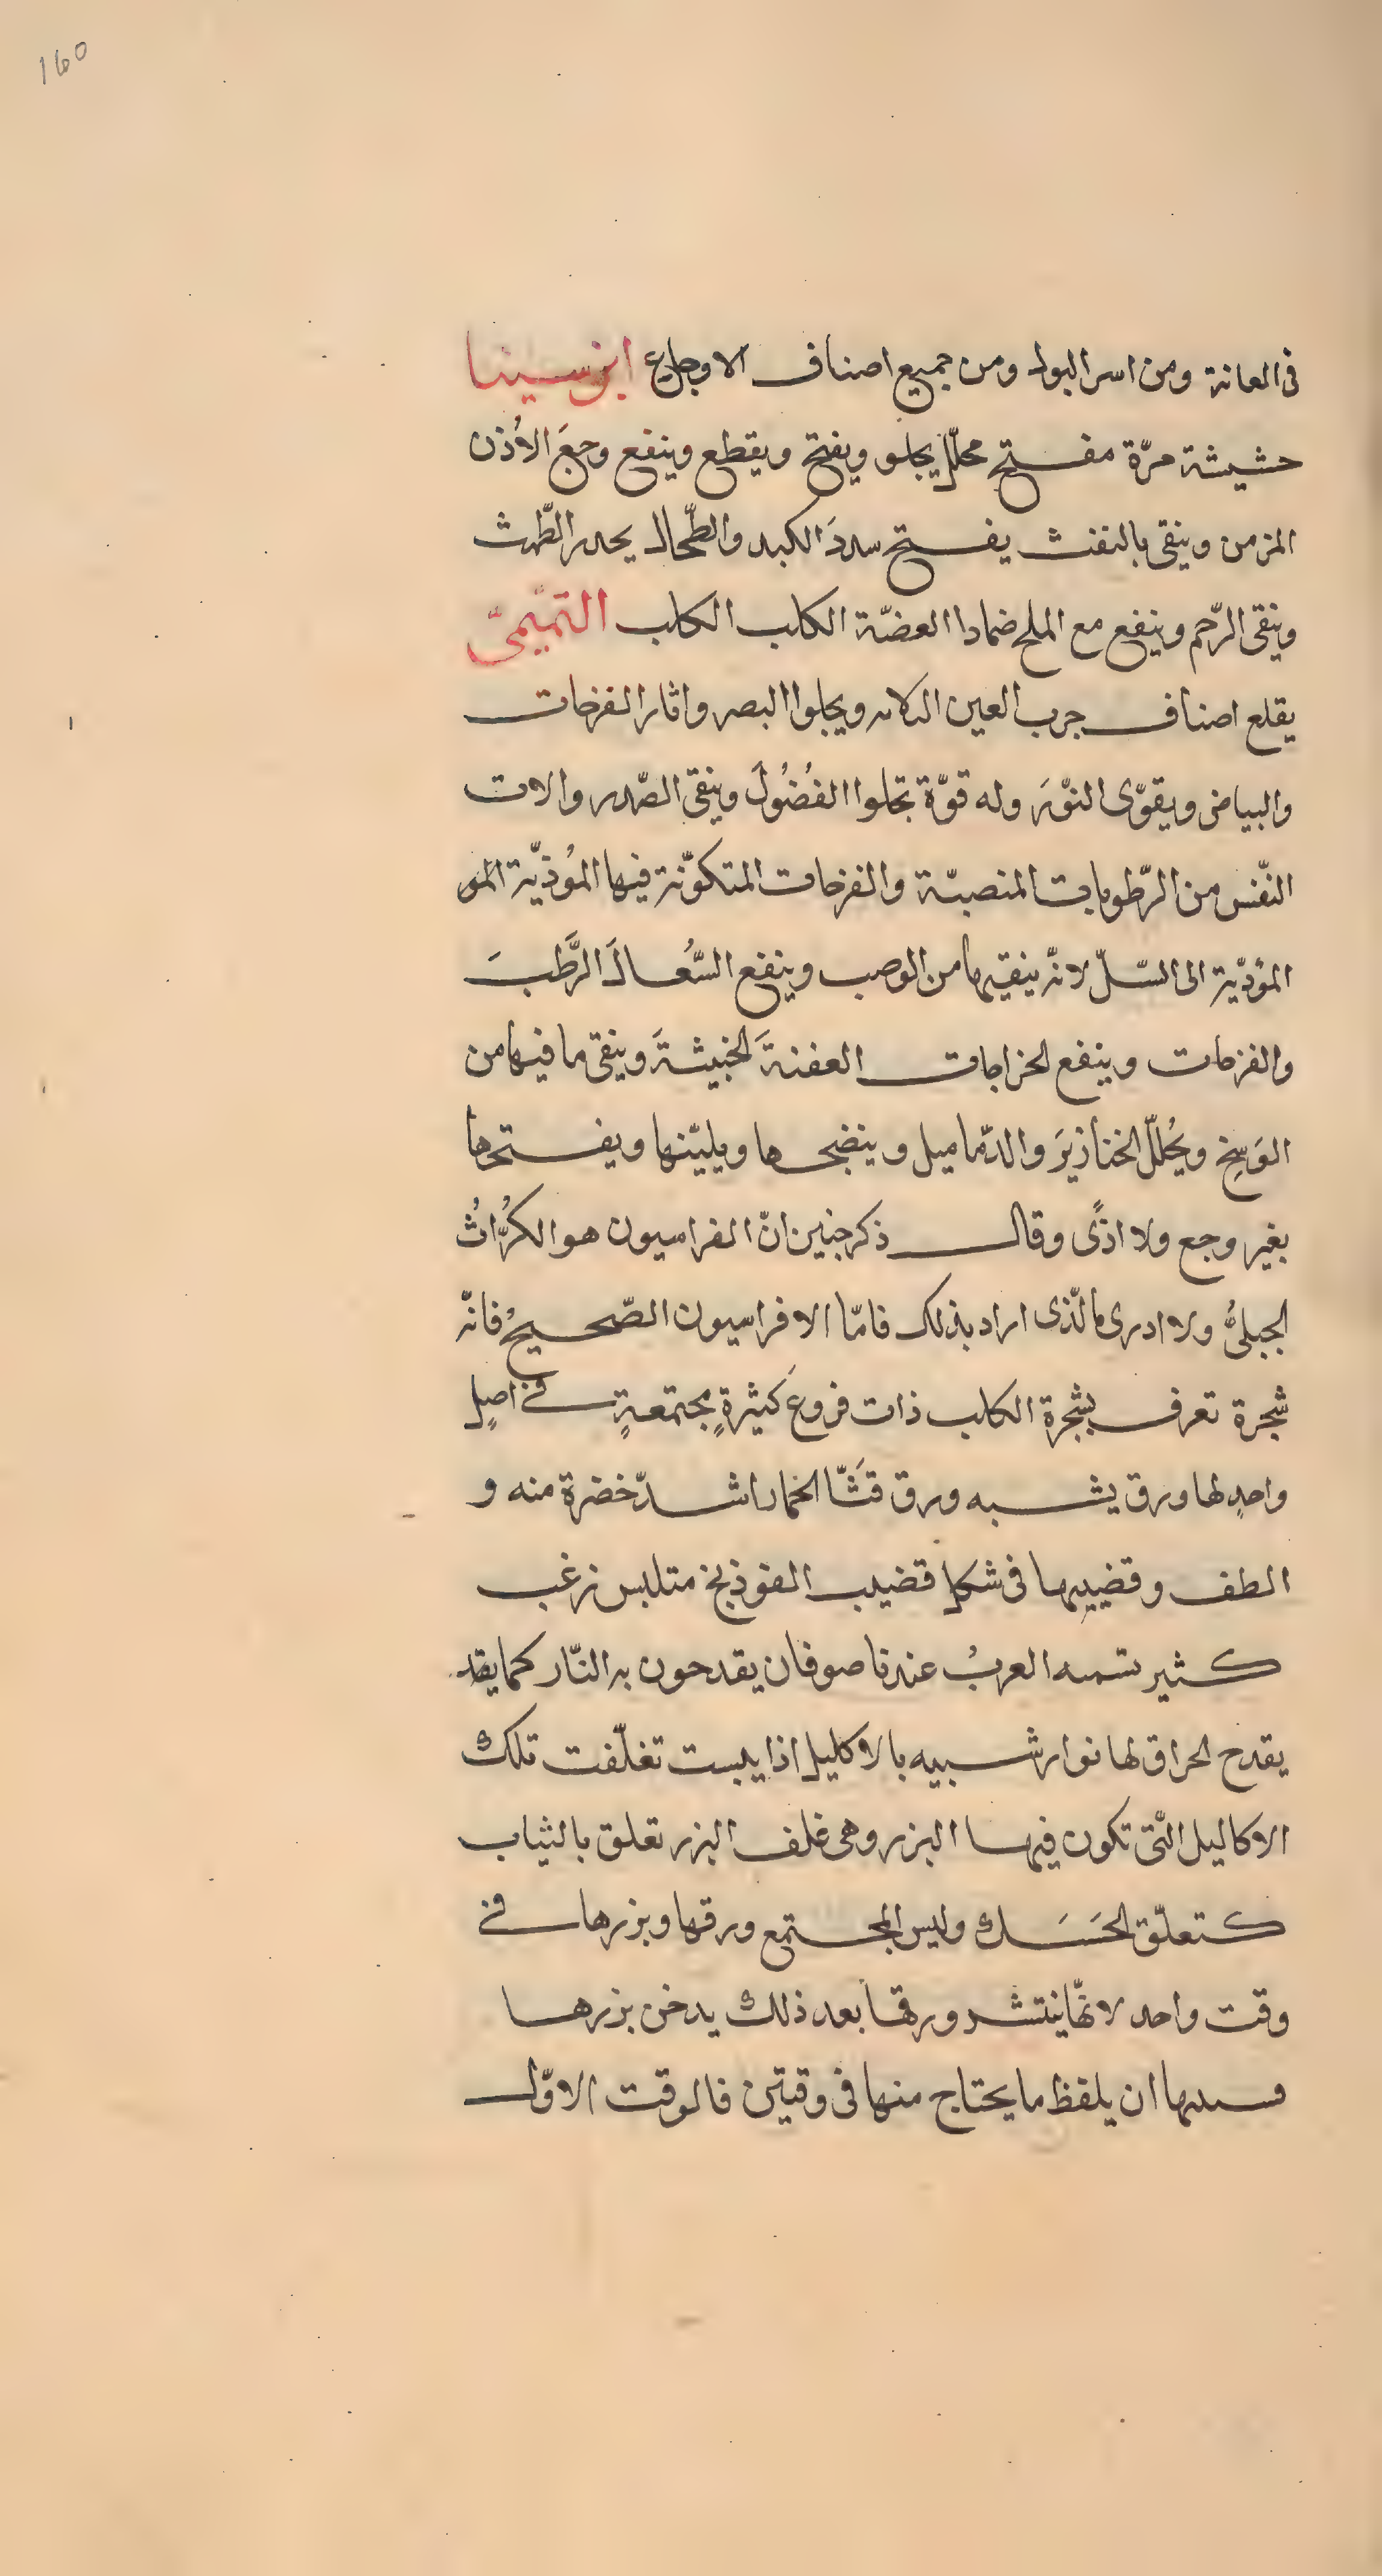 160
فى العانة ومن اسر البول ومن جميع اصناف الاوجاع ابن سينا
حشيشة مرّة مفتح محلّل يجلو ويفتح ويقطع وينفع وجعَ الأذن
المزمن وينقى بالنفث يفتح سددَ الكبد والطّحال يحدر الطّمث
وينقى الرّحم وينفع مع الملح ضمادا العضّة الكلب الكلب التّميمىّ
يقلع اصناف جرب العين ويجلوا البصر واثار القرحات
والبياض ويقوّى النوّرَ وله قوّة تجلوا الفُضُولَ وينقى الصّدر والات
النّفس من الرّطوبات المنصبّة والقرحات المتكوّنة فيها المُوذيّة المو
المؤدّية الى السّلّ لانّه ينقيها من الوصب وينفع السُّعالَ الرَّطبَ
والقرحات وينفع لخراجات العفنةَ الخبيثةَ وينقى ما فيها من
الوَسِخ ويُحلّل الخنازيرَ والدّماميل وينضجها ويليّنها ويفتحها
بغير وجع ولا اذًى وقال ذكر حنين انّ الفراسيون هو الكرُّاثُ
الجبلىُّ ولا ادرى ما الّذى اراد بذلك فامّا الافراسيون الصّحيحُ فانّه
شجرة تعرف بشجرة الكلب ذات فروعَ كثيرةٍ مجتمعةٍ فى اصلٍ
واحدٍ لها ورق يشبه ورق قثّا الحمار اشدّ خضرة منه و
الطف وقضيبها فى شكل قضيب الفوذنج متلبس زغب
كثير تسمه العربُ عندنا صوفان يقدحون به النّار كما يقد
يقدح الحراق لها نوار شبيه بالاكليل اذا يبست تغلّفت تلك
الاكاليل الّتى تكون فيها البزر وهى غلف البزر تعلق بالثياب
كتعلّق الحَسَك وليس المجتمع ورقها وبزرها فى
وقت واحد لانهّا ينتشر ورقها بعد ذلك يدخن بزرها
ان يلفظ ما يحتاج منها فى وقتين فالوقت الاوّل